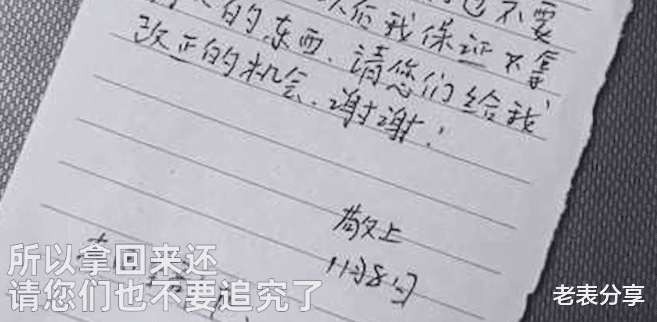 也不要
以后我保证不拿
的东西、请您们给我
改正的机会、谢谢!
敬上
11月8日
所以拿回来还
请您们也不要追究了
老表分享